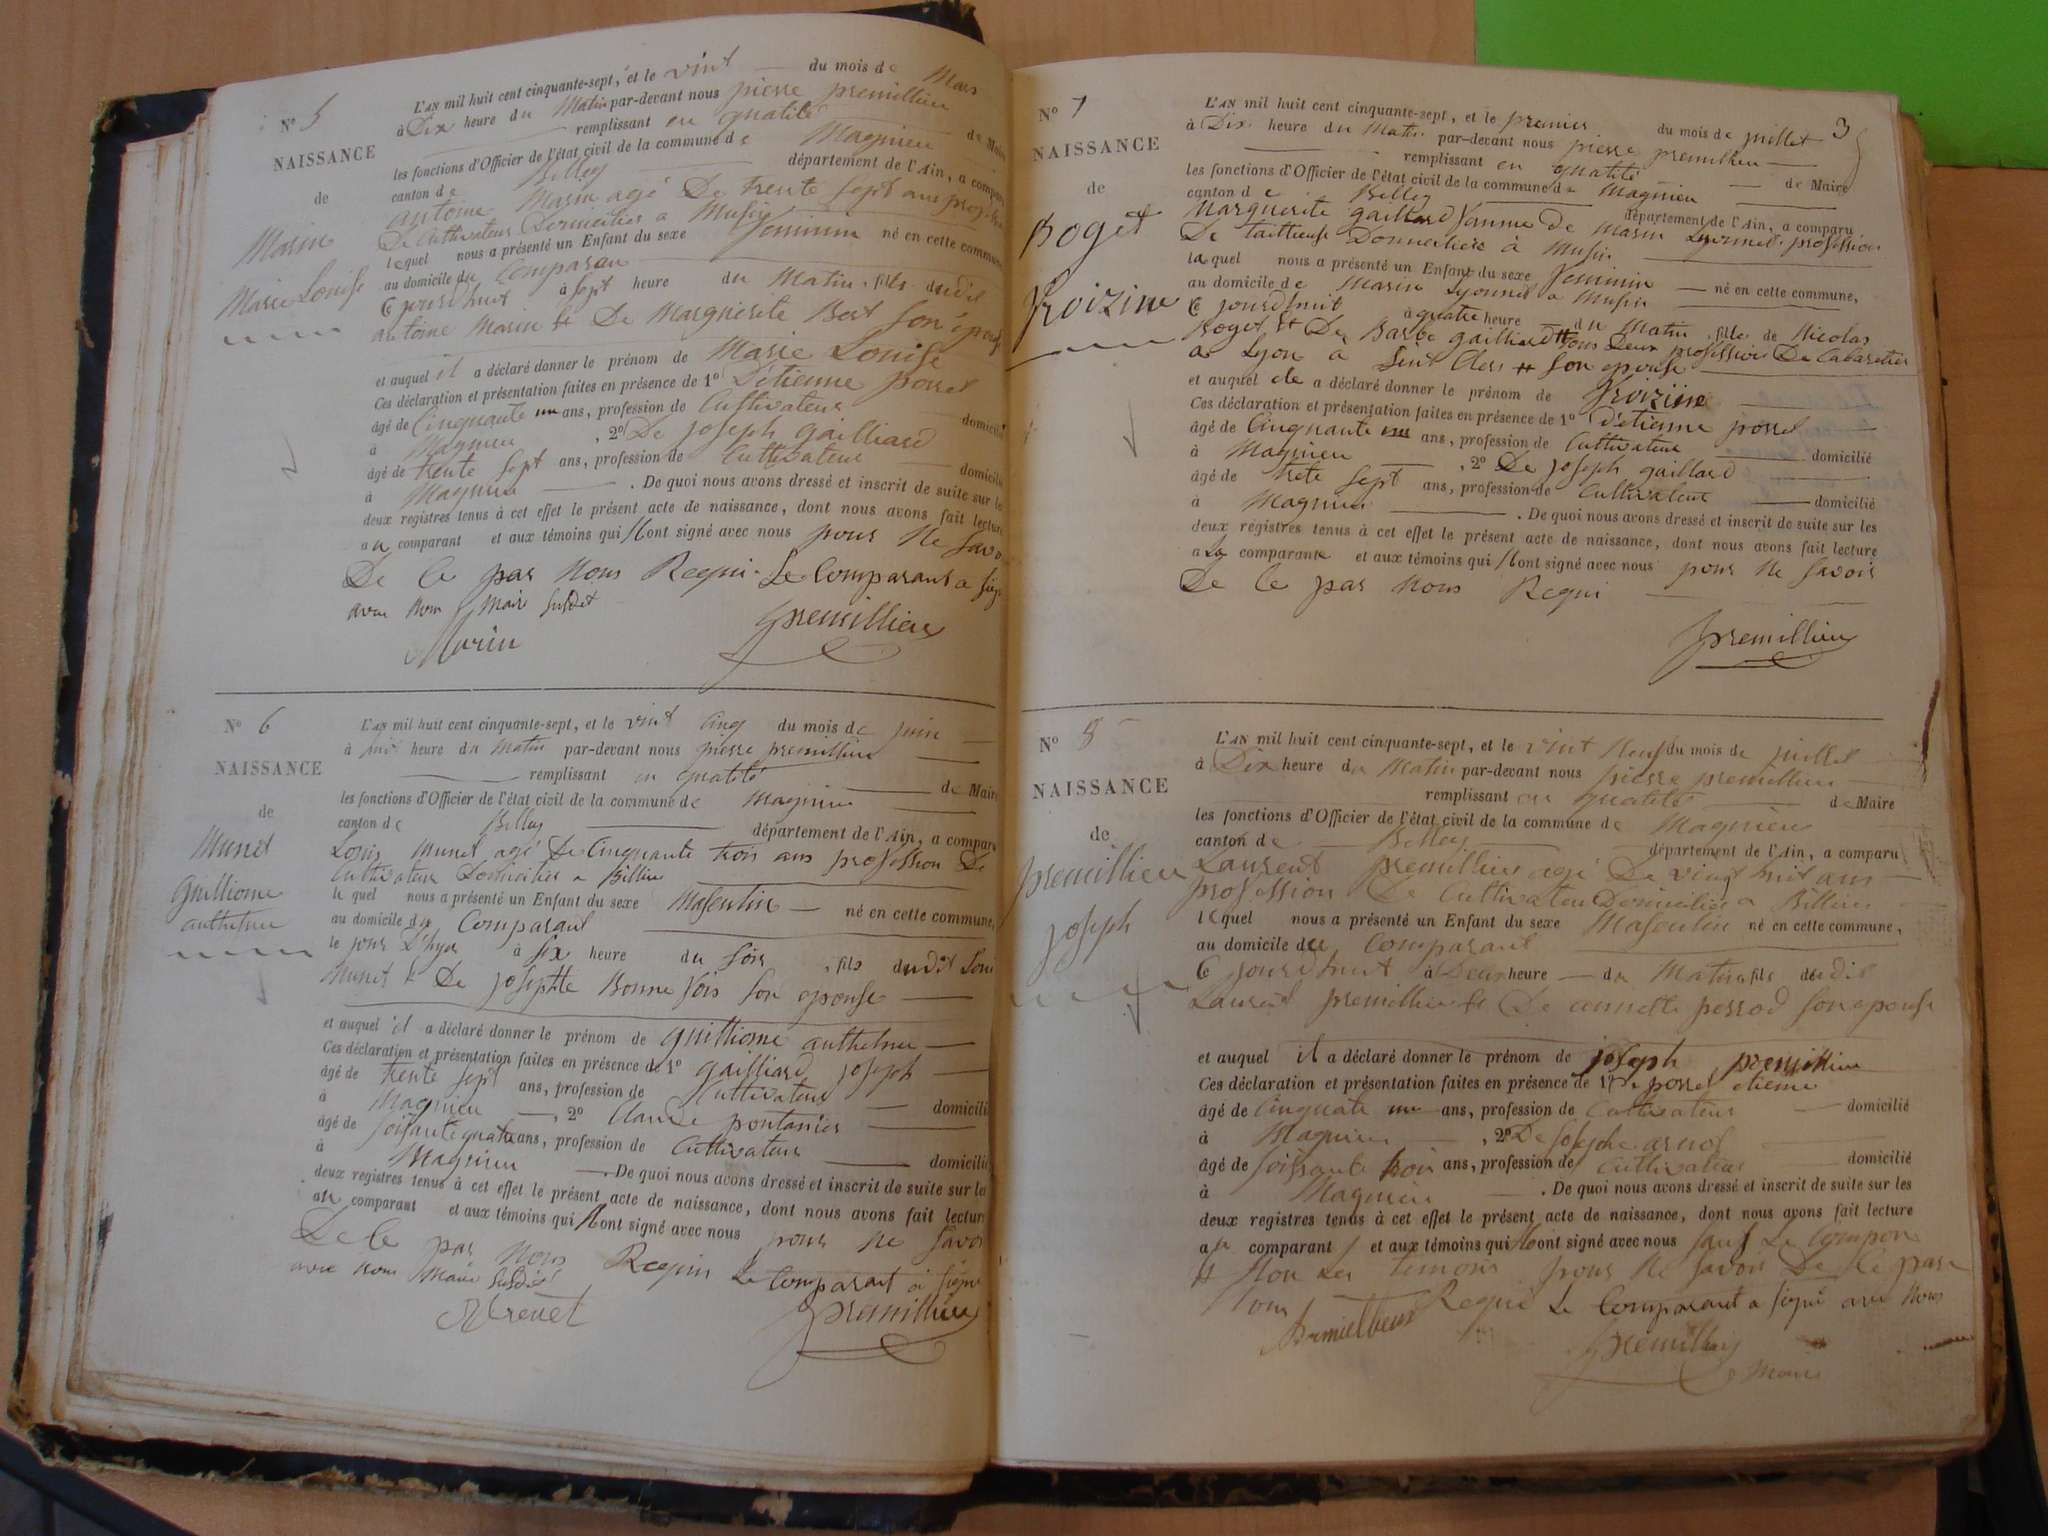 N° 5
NAISSANCE
de
Marin
Marie Louise
L'AN mil huit cent cinquante-sept, et le vint du mois de Mars
à Dix heure du Matin par-devant nous pierre premillieu
remplissant en qualité de Maire
les fonctions d'Officier de l'état civil de la commune de Magnieu
canton de Belley département de l'Ain, a comparu
antoine Marin agé De trente sept ans
De Cultivateur Domicilier a Musin
lequel nous a présenté un Enfant du sexe feminin né en cette commune
au domicile du Comparan
Ce jourd'huit à sept heure du Matin, fils dudit
antoine Marin & De Marguerite Bert son épouse
et auquel il a déclaré donner le prénom de Marie Louise
Ces déclaration et présentation faites en présence de 1° D'étienne possel
âgé de Cinquante un ans, profession de Cultivateur domicilié
à Magnieu , 2° De joseph gailliard
âgé de trente sept ans, profession de Cultivateur domicilié
à Magnieu . De quoi nous avons dressé et inscrit de suite sur les
deux registres tenus à cet effet le présent acte de naissance, dont nous avons fait lecture
au comparant et aux témoins qui ont signé avec nous pour ne savoi
De Ce par Nous Requi. Le Comparant a signé
avec Nous Maire susdit
Marin premillieu
N° 6
NAISSANCE
de
Munet
guilliome
anthelme
L'AN mil huit cent cinquante-sept, et le vint Cinq du mois de juin
à heure du Matin par-devant nous pierre premillieu
remplissant en qualité de Maire
les fonctions d'Officier de l'état civil de la commune de Magnieu
canton de Belley département de l'Ain, a comparu
Louis Munet agé De Cinquante trois ans profession De
Cultivateur Domicilier a Billieu
le quel nous a présenté un Enfant du sexe Masculin né en cette commune,
au domicile du Comparant
le jour D'hyer à six heure du soir, fils dudit Loui
Munet & De josephte Bonne fois son epouse
et auquel il a déclaré donner le prénom de guilliome anthelme
Ces déclaration et présentation faites en présence de 1° gailliard joseph
âgé de trente sept ans, profession de Cultivateur
à Magnieu , 2° Claude pontanier domicilié
âgé de soisante quatre ans, profession de Cultivateur
à Magnieu domicilié
. De quoi nous avons dressé et inscrit de suite sur les
deux registres tenus à cet effet le présent acte de naissance, dont nous avons fait lecture
au comparant et aux témoins qui ont signé avec nous pour ne savoi
De Ce par Nous Requis Le Comparant a signé
avec Nous Maire susdit
premillieu
3
N° 7
NAISSANCE
de
Boget
froizine
L'AN mil huit cent cinquante-sept, et le premier du mois de juillet
à Dix heure du Matin par-devant nous pierre premillieu
remplissant en qualité de Maire
les fonctions d'Officier de l'état civil de la commune de Magnieu
canton de Belley département de l'Ain, a comparu
Marguerite gaillard famme De Marin Lyonnet profession
De taillieuse Domicilièe à Musin
laquel nous a présenté un Enfant du sexe feminin né en cette commune,
au domicile de Marin Lyonnet a Musin
Ce jourd'huit à quatre heure du Matin, fille de Nicolas
Boget & De Barbe gailliard tous Deux profession De Cabaretier
a Lyon a son epouse
et auquel ele a déclaré donner le prénom de froizine
Ces déclaration et présentation faites en présence de 1° D'étienne possel
âgé de Cinquante un ans, profession de Cultivateur
à Magnieu , 2° De joseph gaillard domicilié
âgé de trete sept ans, profession de Cultivateur
à Magnieu domicilié
. De quoi nous avons dressé et inscrit de suite sur les
deux registres tenus à cet effet le présent acte de naissance, dont nous avons fait lecture
a La comparante et aux témoins qui ont signé avec nous pour ne savoir
De Ce par Nous Requi
premillieu
N° 8
NAISSANCE
de
premillieu
joseph
L'AN mil huit cent cinquante-sept, et le vint Neuf du mois de juillet
à Dix heure du Matin par-devant nous pierre premillieu
remplissant en qualité de Maire
les fonctions d'Officier de l'état civil de la commune de Magnieu
canton de Belley département de l'Ain, a comparu
Laurent premillieu agé De vingt huit ans
profession De Cultivateur Domicilier a Billieu
lequel nous a présenté un Enfant du sexe Masculin né en cette commune,
au domicile du Comparant
Ce jourd'huit à Deux heure du Matin, fils dudit
Laurent premillieu & De annette perrod son epouse
et auquel il a déclaré donner le prénom de joseph premillieu
Ces déclaration et présentation faites en présence de 1° De possel etienne
âgé de Cinquate un ans, profession de Cultivateur domicilié
à Magnieu , 2° De josephe
âgé de soissante trois ans, profession de Cultivateur domicilié
à Magnieu . De quoi nous avons dressé et inscrit de suite sur les
deux registres tenus à cet effet le présent acte de naissance, dont nous avons fait lecture
au comparant et aux témoins qui ont signé avec nous sauf Le Compan
Non Les temoins pour Ne savoir De Ce par
Nous Requi Le Comparant a signé avec Nous
premillieu
Maire